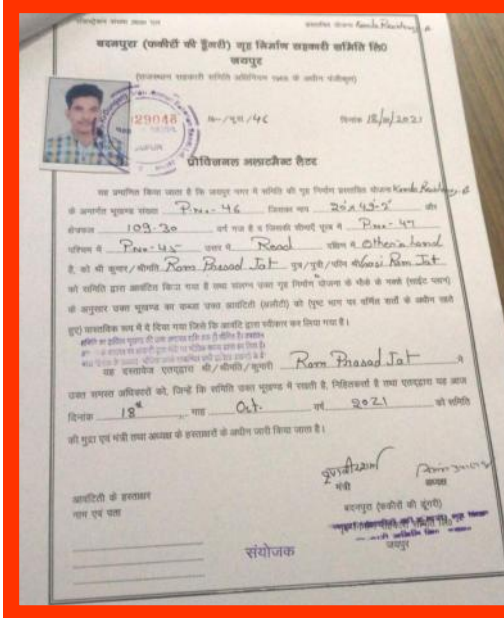 प्रस्तावित योजना Kamla Residency-B
बदनपुरा (फकीरों की डूँगरी) गृह निर्माण सहकारी समिति लि0
जयपुर
(राजस्थान सहकारी समिति अधिनियम के अधीन पंजीकृत)
129048 /46 दिनांक 18/10/2021
प्रोविजनल अलाटमैन्ट लैटर
यह प्रमाणित किया जाता है कि जयपुर नगर में समिति की गृह निर्माण प्रस्तावित योजना Kamla Residency-B
के अन्तर्गत भूखण्ड संख्या P.no-46 जिसका माप और
क्षेत्रफल 109-30 वर्ग गज है व जिसकी सीमाऐं पूरब में P.no-47
पश्चिम में P.no-45 उत्तर में Road दक्षिण में Other's Land
है, को श्री कुमार/श्रीमति Ram Prasad Jat पुत्र/पुत्री/पत्नि श्री Ram Jat
को समिति द्वारा आवंटित किया गया है तथा संलग्न उक्त गृह निर्माण योजना के मौके के नक्शे (साईट प्लान)
के अनुसार उक्त भूखण्ड का कब्जा उक्त आवंटिती (अलोटी) को (पृष्ठ भाग पर वर्णित शर्तों के अधीन रहते
हुए) वास्तविक रूप में दे दिया गया जिसे कि आवंटि द्वारा स्वीकार कर लिया गया है।
यह दस्तावेज एतद्द्वारा श्री/श्रीमति/कुमारी Ram Prasad Jat ने
उक्त समस्त अधिकारों को, जिन्हें कि समिति उक्त भूखण्ड में रखती है, निहितकर्ता है तथा एतद्द्वारा यह आज
दिनांक 18th माह Oct. वर्ष 2021 को समिति
की मुद्रा एवं मंत्री तथा अध्यक्ष के हस्ताक्षरों के अधीन जारी किया जाता है।
मंत्री अध्यक्ष
आवंटिती के हस्ताक्षर
नाम एवं पता
बदनपुरा (फकीरों की डूंगरी)
संयोजक
जयपुर